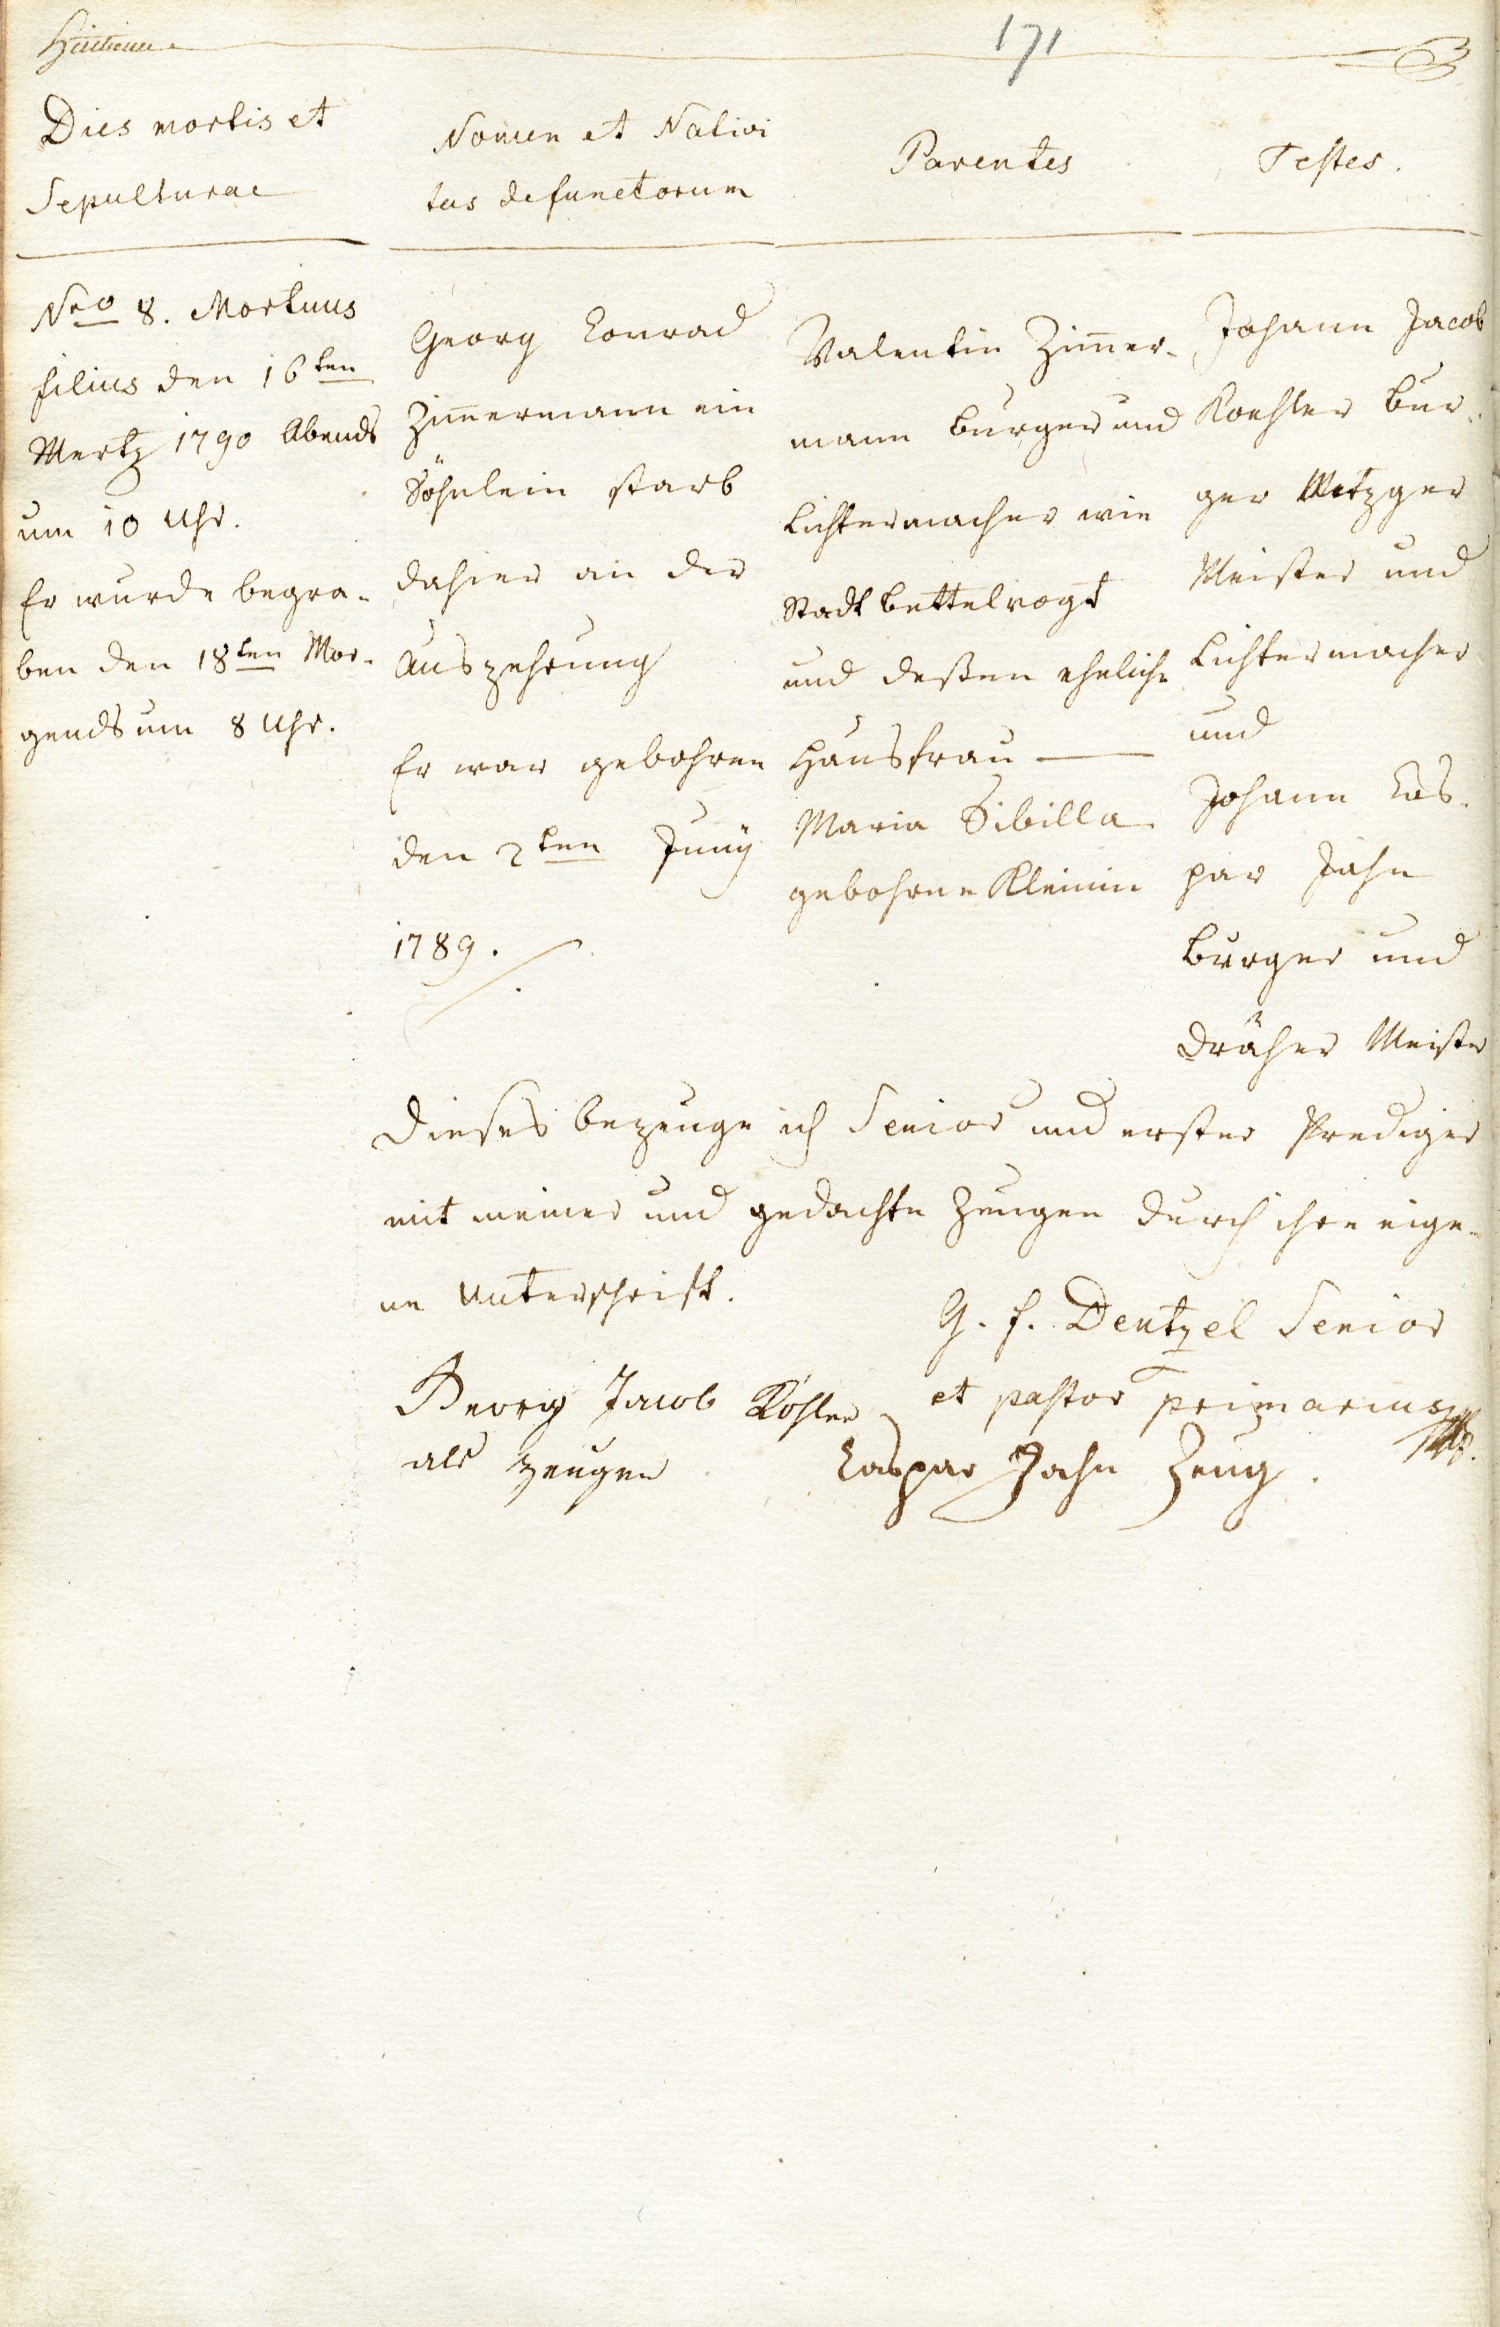 171
Dies mortis et
Sepulturae
Nomen et Nativi
tas defunctorum
Parentes
Testes.
Nro 8. Mortuus
filius den 16ten
Mertz 1790 Abends
um 10 Uhr.
Er wurde begra-
ben den 18ten Mor-
gends um 8 Uhr.
Georg Conrad
Zim̅ermann ein
Söhnlein starb
dahier an der
Auszehrung
Er war gebohren
den 2ten Junÿ
1789.
Valentin Zim̅er-
mann burger und
Lichtermacher wie
Stadt bettelvogt
und deßen ehelich
Hausfrau
Maria Sibilla
gebohrne Kleinin
Johann Jacob
Koehler bur-
ger Metzger
Meister und
Lichtermacher
und
Johann Cas-
par Jahn
burger und
Dräher Meister
Dieses bezeuge ich Senior und erster Prediger
mit meiner und gedachte Zeugen durch ihre eige-
ne Unterschrift.
G. f. Dentzel Senior
et pastor primarius
Georg Jacob Köhler
als zeugen
Caspar Jahn Zeug.